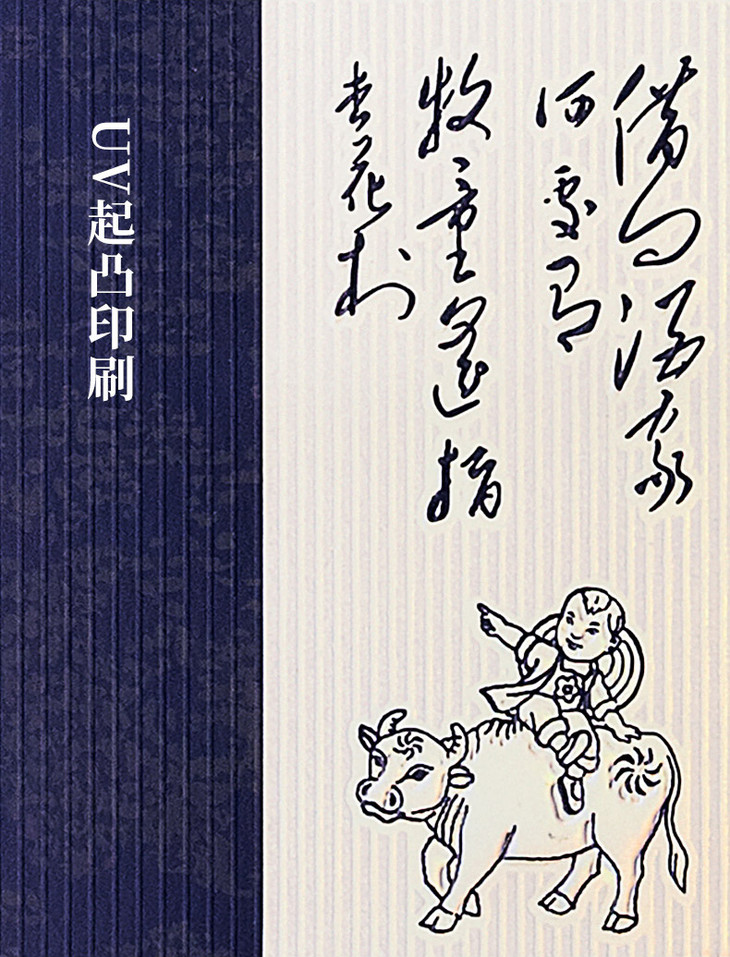 UV起凸印刷
借问酒家
何處
牧童遙指
杏花村